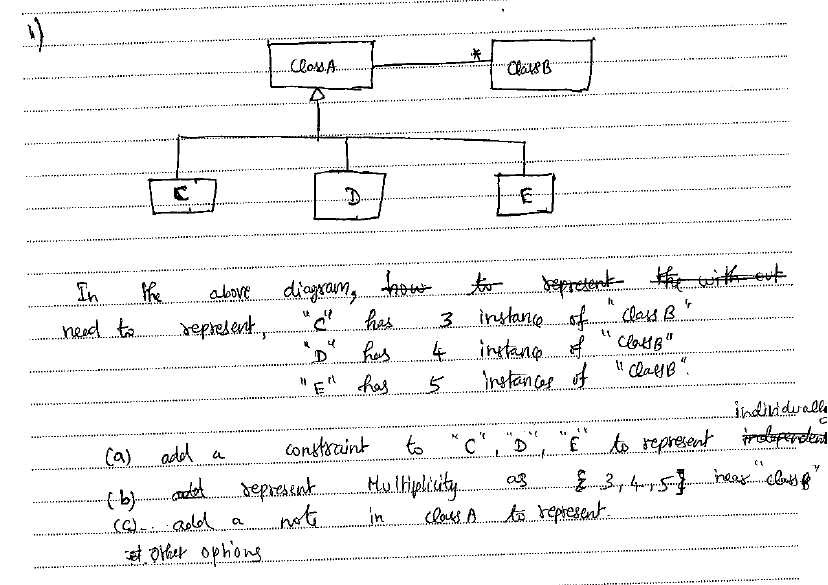 1)
ClassA
*
ClassB
C
D
E
In the above diagram, how to represent the with out
need to represent, "C" has 3 instance of "ClassB"
"D" has 4 instance of "ClassB"
"E" has 5 instances of "ClassB".
individually
(a) add a constraint to "C", "D", "E" to represent independent
(b) add represent Multiplicity as { 3, 4, 5} near "classB"
(c). add a note in classA to represent.
other options